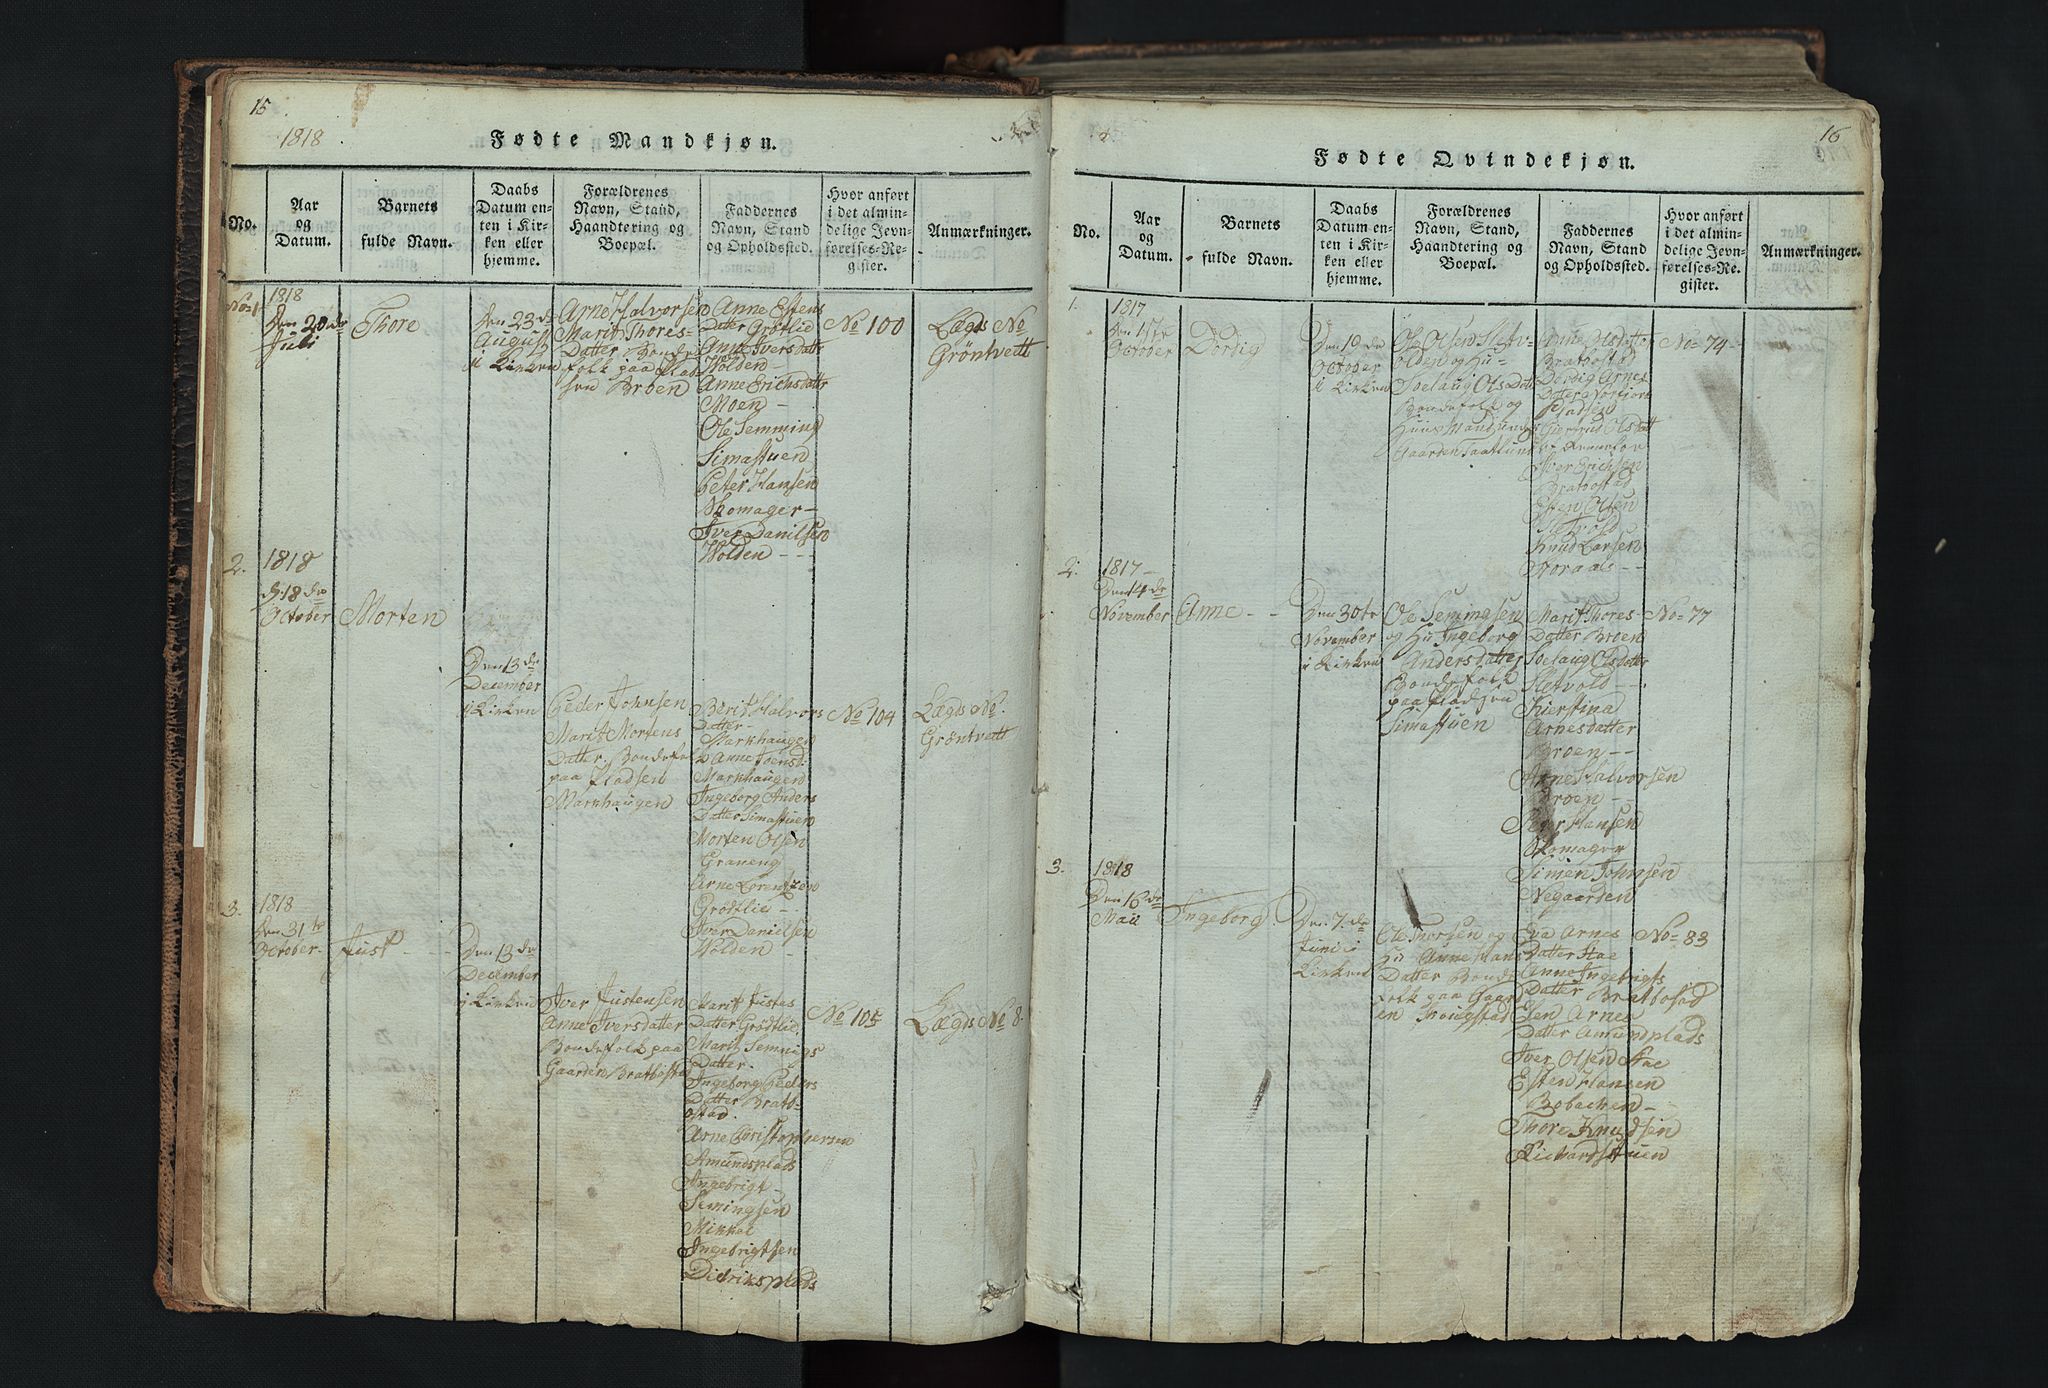 15
1818
Fødte Mandkjøn.
No.
Aar
og
Datum.
Barnets
fulde Navn.
Daabs
Datum en-
ten i Kir-
ken eller
hjemme.
Forældrenes
Navn, Stand,
Haandtering og
Boepæl.
Faddernes
Navn, Stand
og Opholdssted.
Hvor anført
i det almin-
delige Jevn-
førelses-Re-
gister.
Anmærkninger.
No 1
1818
Den 20de
Juli
Thore
Den 23de
August
i Kirken
Arne Halvorsen
Marit Thores-
Datter Bonde
folk paa Plad
sen Broen
Anne Estens
Datter Grötlie
Anne Iversdattr
Wolden -
Anne Erichsdattr
Moen -
Ole Semming
Simastuen
Peter Hansen
Skomager -
Iver Danilsen
Wolden - - -
No 100
Lægds No
Gröntvett
2.
1818
d. 18de
October
Morten
Den 13de
December
i Kirken
Peder Johnsen
Marit Mortens
Datter. Bondefol
paa Pladsen
Markhaugen
Berit Halvors
Datter -
Markhaugen
Anne Joensd.
Markhaugen
Ingeborg Anders
Datter Simastuen
Morten Olsen
Graneng
Arne Lorentzen
Grödtlie -
Iver Danielsen
Wolden -
No 104
Lægds No.
Gröntvett
3.
1818
Den 31te
October
Just - -
Den 13de
December
i Kirken
Iver Justensen
Anne Iversdatter
Bondefolk paa
Gaarden Bratbostad
Marit Justas
Datter Grödtlie.
Marit Semnigs
Datter.
Ingeborg Peders
Datter Bratb-
ostad.
Arne Christophersen
Amundsplads
Ingebrigt -
Semingsen
Mikkel
Ingebrigtsen
Didriksplads
No 105
Lægds No 8.
16
Fødte Qvindekjøn.
No.
Aar
og
Datum.
Barnets
fulde Navn.
Daabs
Datum en-
ten i Kir-
ken eller
hjemme.
Forældrenes
Navn, Stand,
Haandtering og
Boepæl.
Faddernes
Navn, Stand
og Opholdssted.
Hvor anført
i det almin-
delige Jevn-
førelses-Re-
gister.
Anmærkninger.
1.
1817
Den 1ste
October
Dordig
October
i Kirken
Ole Olsen Sletv-
olden og Hu-
Soelaug Ols Datt
Bondefolk og
Gaarden
Anne Olsdatter
Bratbostad
Dordig Arnes
Datter
Pladsen
Giertrud Olsdatt
Iver Erichsen
Bratbostad
Esten Olsen
Sletvold
Knud Larsen
Storaas - -
No 74 -
2.
1817 -
Den 14de
November
Anne - -
Den 30te
November
i Kirken
Ole Semingsen
og Hu Ingeborg
Andersdatter
Bondefolk
paa Pladsen
Simastuen
Marit Thores
Datter Broen
Soelaug Olsdatter
Sletvold - -
Kierstina
Arnesdatter
Broen - -
Arne Halvorsen
Broen - -
Peter Hansen
Skomager
Simen Johnsen
Negaarden
No 77
3.
1818
Den 16de
Maii
Ingeborg.
Den 7.de
Junii i
Kirken
Ole Thorsen og
Hu Anne Hans
Datter Bonde
folk paa Gaard
en
Eva Arnes
Datter Hae
Anne Ingebrigts
Datter Bratbostad
Elen Arnes
Datter Amundplads
Iver Olsen Hae
Esten Hansen
Bobacken -
Thore Knudsen
Richardstuen
No 83